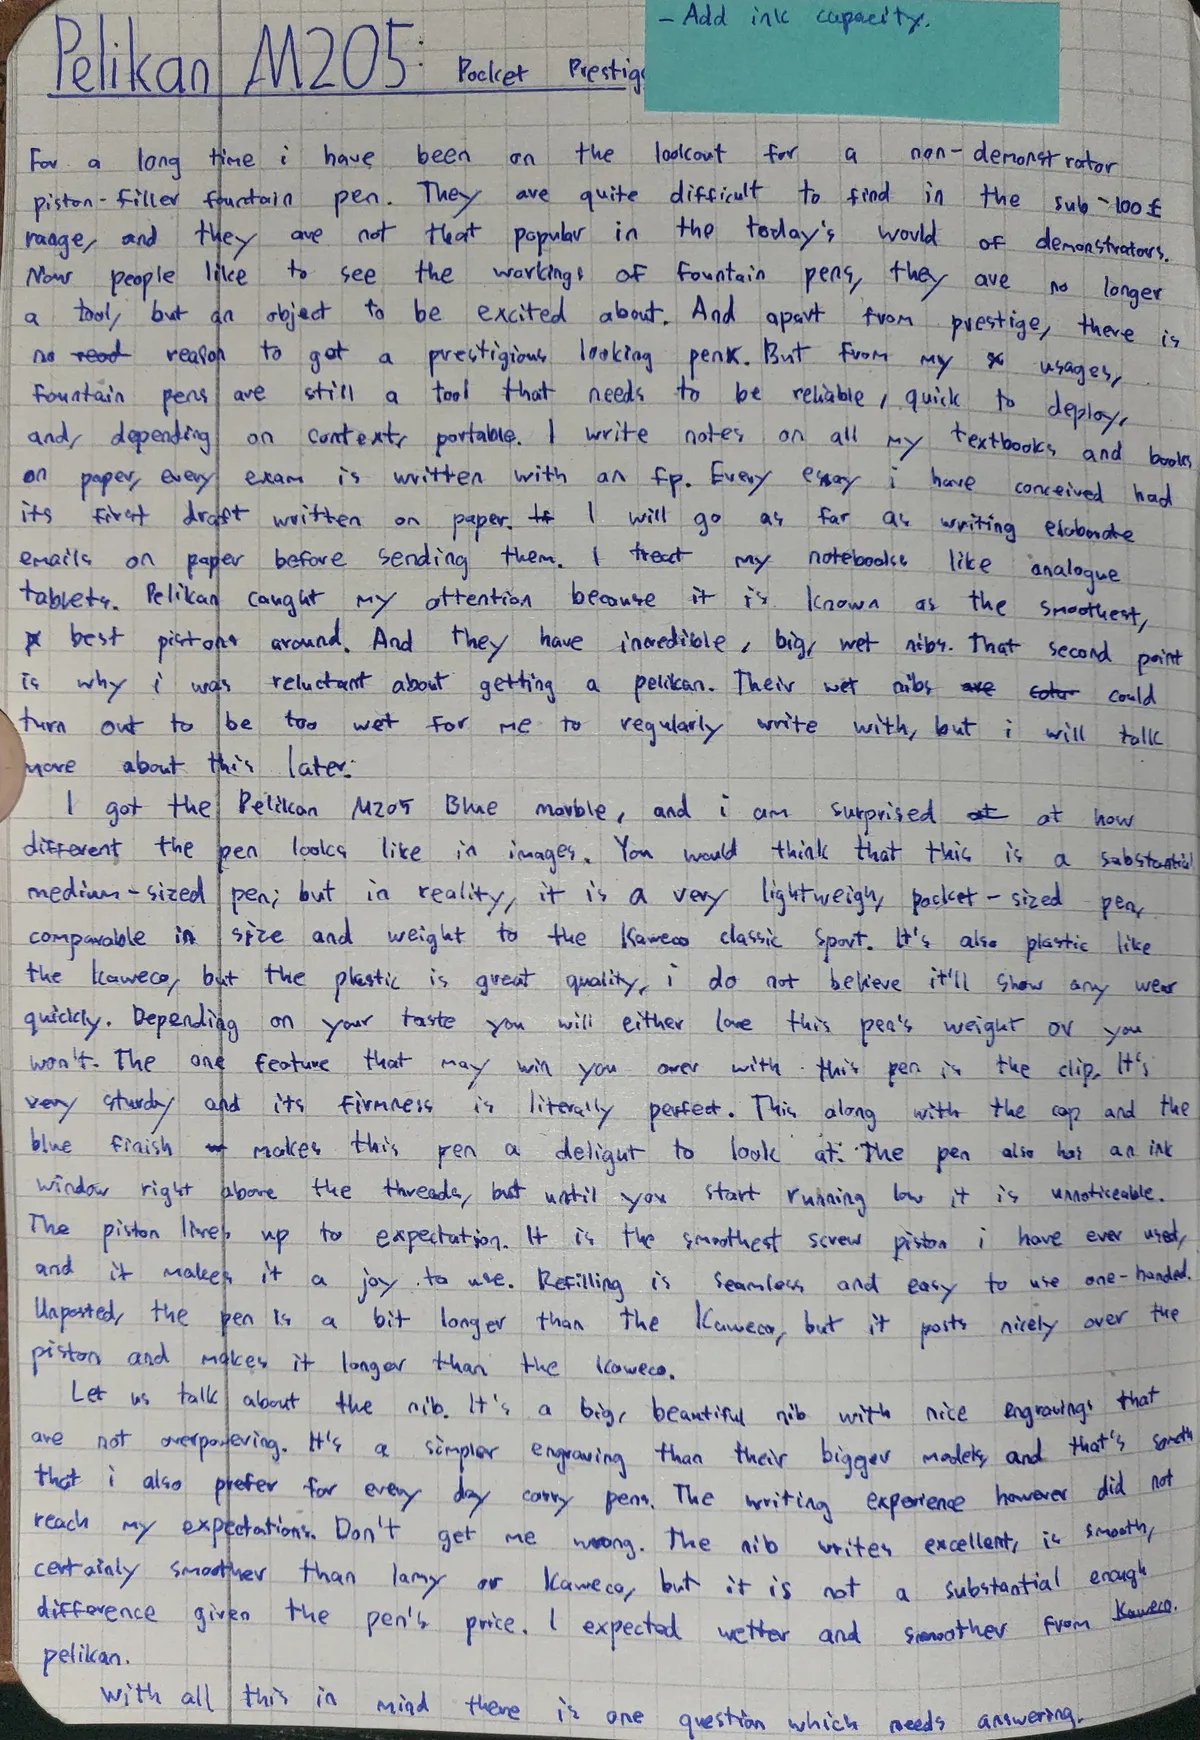 - Add ink capacity.
Pelikan M205: Pocket Prestig
For a long time i have been on the lookout for a non-demonstrator
piston-filler fountain pen. They are quite difficult to find in the sub-100£
range, and they are not that popular in the today's world of demonstrators.
Now people like to see the workings of fountain pens, they are no longer
a tool, but an object to be excited about. And apart from prestige, there is
no read reason to get a prestigious looking pen. But from my usages,
fountain pens are still a tool that needs to be reliable, quick to deploy,
and, depending on context, portable. I write notes on all my textbooks and books
on paper, every exam is written with an fp. Every essay i have conceived had
its first draft written on paper. If I will go as far as writing elaborate
emails on paper before sending them. I treat my notebooks like analogue
tablets. Pelikan caught my attention because it is known as the smoothest,
best pistons around. And they have incredible, big, wet nibs. That second point
is why i was reluctant about getting a pelikan. Their wet nibs are could
turn out to be too wet for me to regularly write with, but i will talk
more about this later.
I got the Pelikan M205 Blue marble, and i am surprised at at how
different the pen looks like in images. You would think that this is a substantial
medium-sized pen; but in reality, it is a very lightweigh, pocket-sized pen,
comparable in size and weight to the Kaweco classic Sport. It's also plastic like
the kaweco, but the plastic is great quality, i do not believe it'll show any wear
quickly. Depending on your taste you will either love this pen's weight or you
won't. The one feature that may win you over with this pen is the clip. It's
very sturdy and its firmness is literally perfect. This along with the cap and the
blue finish makes this pen a delight to look at. The pen also has an ink
window right above the threads, but until you start running low it is unnoticeable.
The piston lives up to expectation. It is the smoothest screw piston i have ever used,
and it makes it a joy to use. Refilling is seamless and easy to use one-handed.
Unposted, the pen is a bit longer than the Kaweco, but it posts nicely over the
piston and makes it longer than the kaweco.
Let us talk about the nib. It's a big, beautiful nib with nice engravings that
are not overpowering. It's a simpler engraving than their bigger models, and that's someth
that i also prefer for every day carry pens. The writing experience however did not
reach my expectations. Don't get me wrong. The nib writes excellent, is smooth,
certainly smoother than lamy or kaweco, but it is not a substantial enough
difference given the pen's price. I expected wetter and smoother from Kaweco.
pelikan.
With all this in mind there is one question which needs answering.